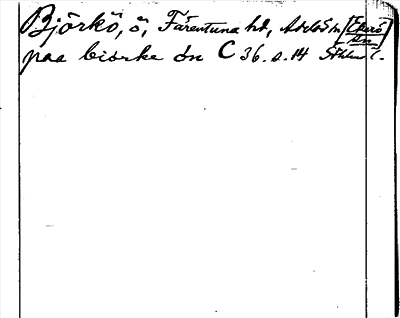 Björkö, ö, Färentuna hd, Adelsö sn [Ekerö sn]
paa biorke ön C 36. s. 14 Sthlms l.